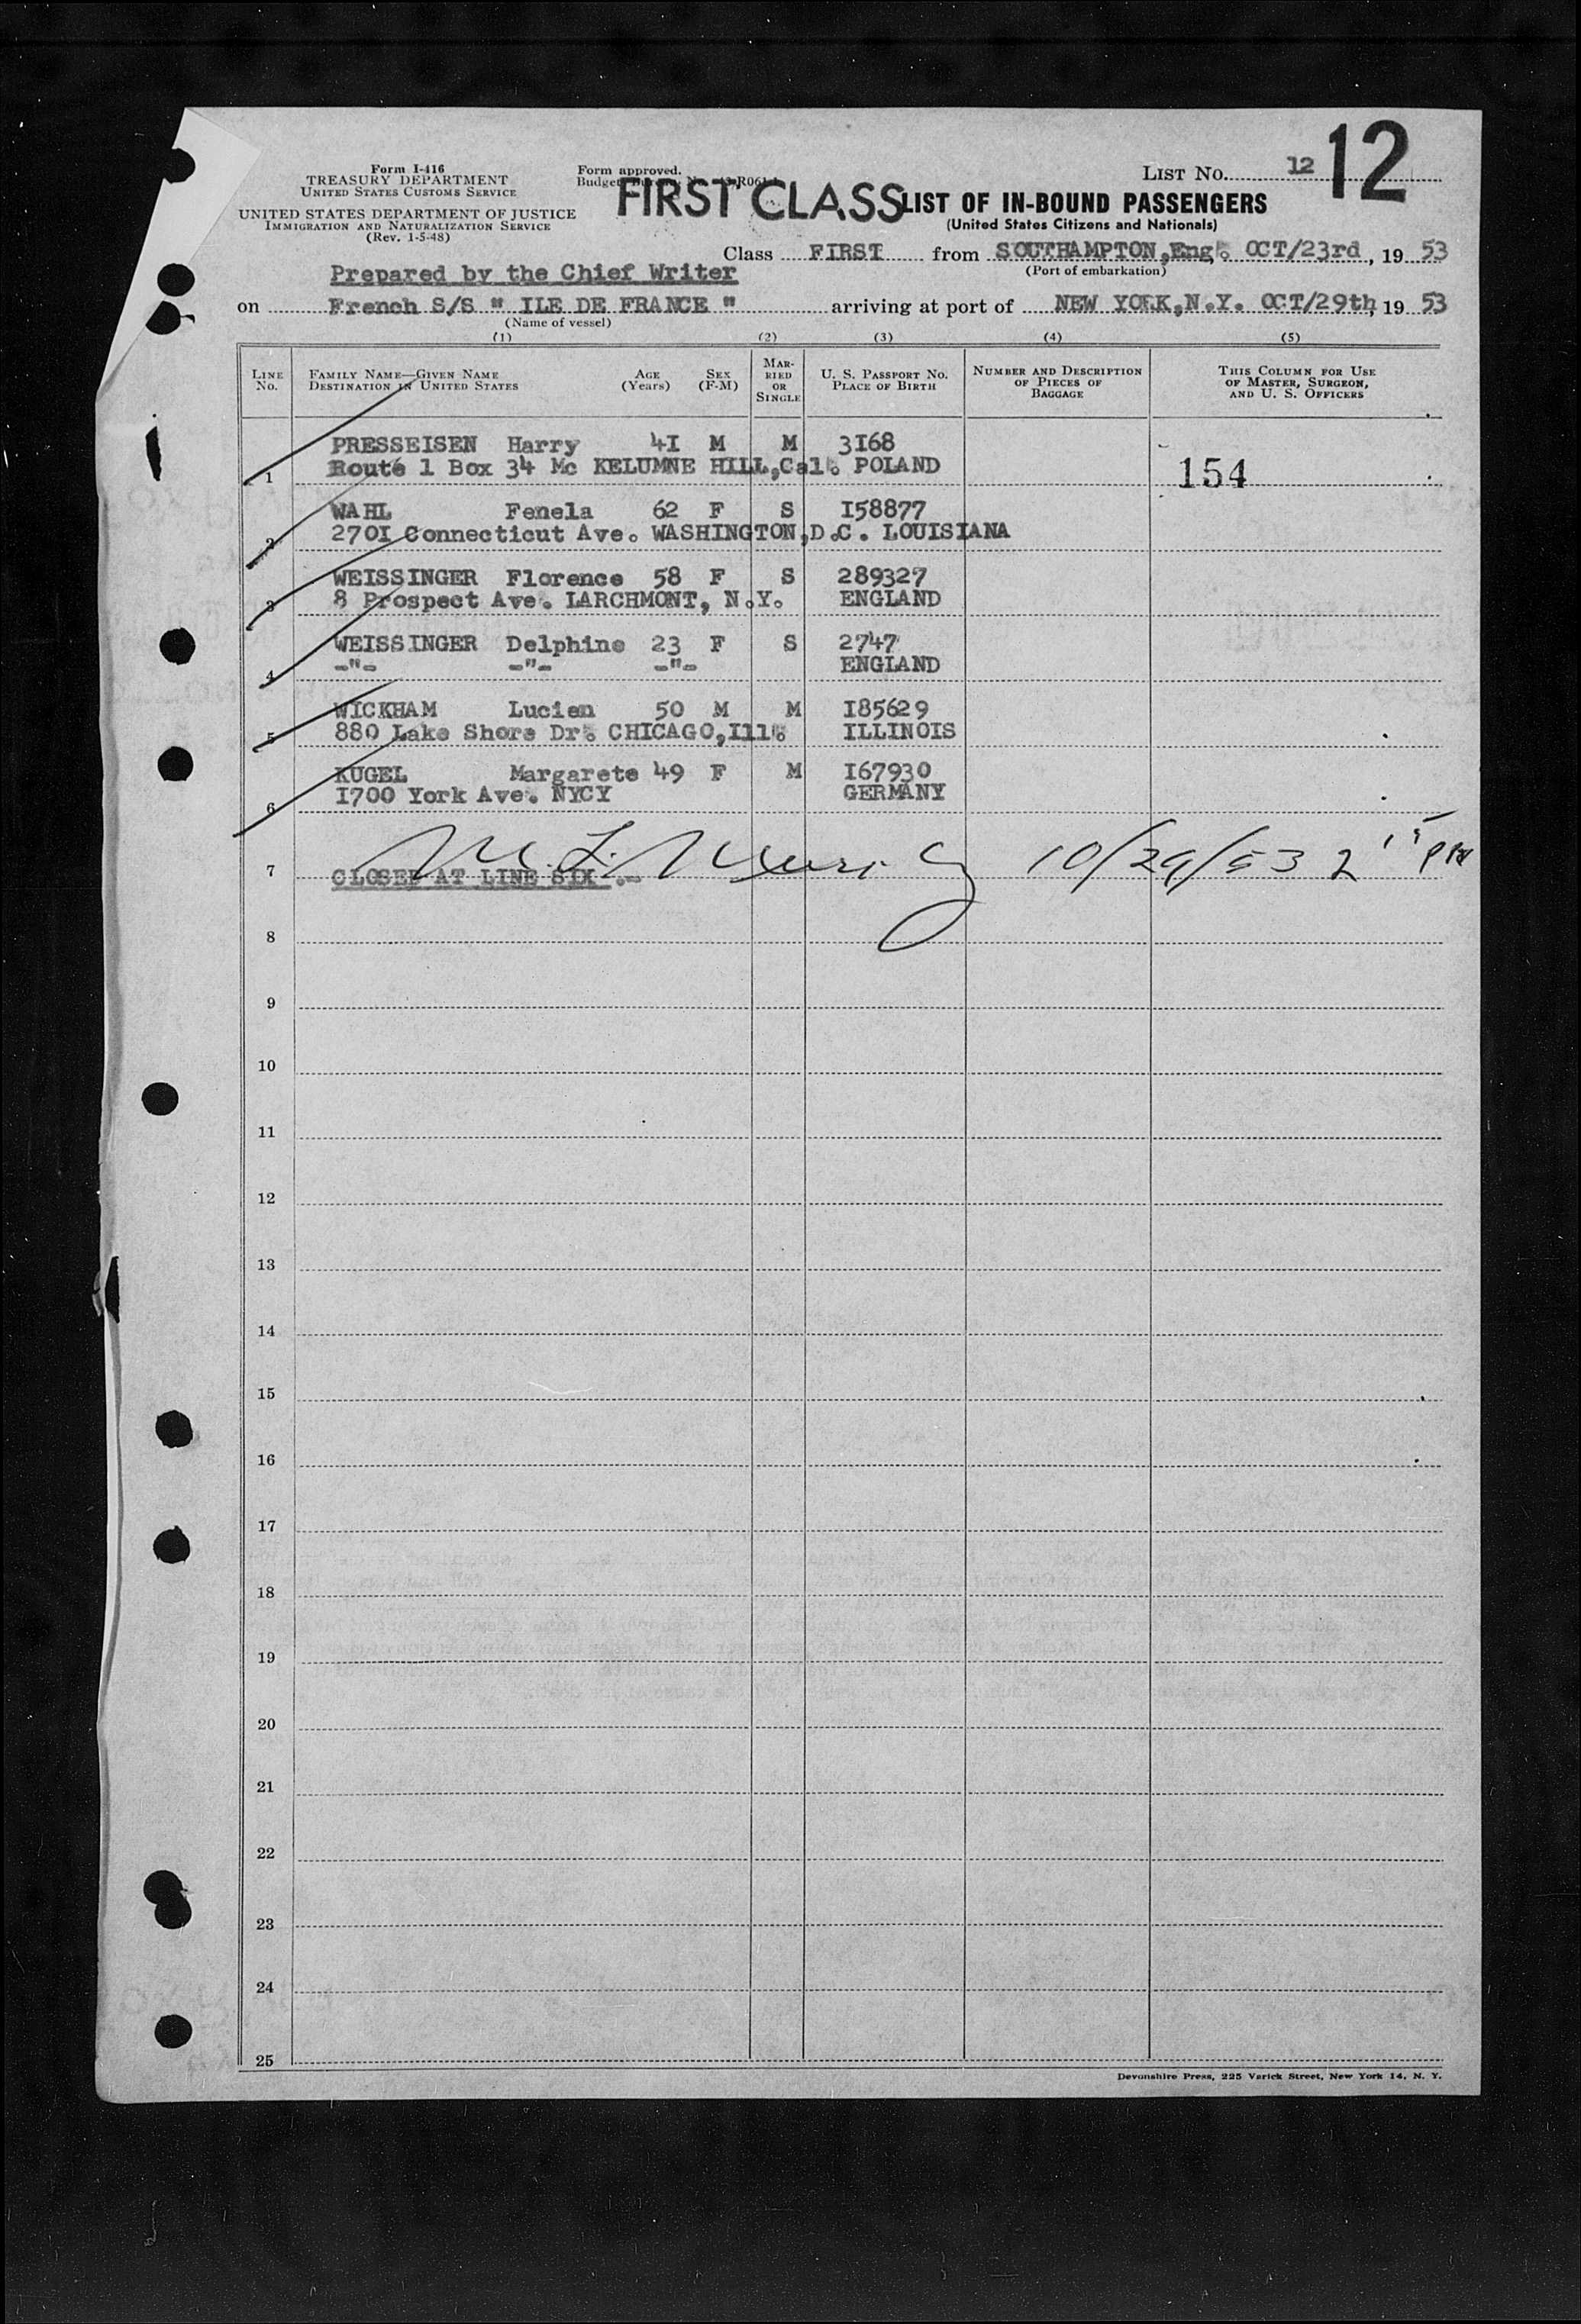 12
Form I-416
TREASURY DEPARTMENT
UNITED STATES CUSTOMS SERVICE
UNITED STATES DEPARTMENT OF JUSTICE
IMMIGRATION AND NATURALIZATION SERVICE
(Rev. 1-5-48)
Form approved.
FIRST CLASS
LIST NO. 12
LIST OF IN-BOUND PASSENGERS
(United States Citizens and Nationals)
Class FIRST from SOUTHAMPTON,Eng. OCT/23rd, 19 53
(Port of embarkation)
Prepared by the Chief Writer
on French S/S " ILE DE FRANCE " arriving at port of NEW YORK,N.Y. OCT/29th, 19 53
(Name of vessel)
(1) (2) (3) (4) (5)
LINE No. FAMILY NAME—GIVEN NAME DESTINATION IN UNITED STATES AGE (Years) SEX (F-M) MARRIED OR SINGLE U. S. PASSPORT NO. PLACE OF BIRTH NUMBER AND DESCRIPTION OF PIECES OF BAGGAGE THIS COLUMN FOR USE OF MASTER, SURGEON, AND U. S. OFFICERS
1 PRESSEISEN Harry 4I M M 3I68
Route 1 Box 34 Mc KELUMNE HILL,Cal. POLAND 154
2 WAHL Fenela 62 F S I58877
270I Connecticut Ave. WASHINGTON,D.C. LOUISIANA
3 WEISSINGER Florence 58 F S 289327
8 Prospect Ave. LARCHMONT, N.Y. ENGLAND
4 WEISSINGER Delphine 23 F S 2747
-"- -"- -"- ENGLAND
5 WICKHAM Lucien 50 M M I85629
880 Lake Shore Dr. CHICAGO,Ill. ILLINOIS
6 KUGEL Margarete 49 F M I67930
I700 York Ave. NYCY GERMANY
7 CLOSED AT LINE SIX .- 10/29/53 2 15 PM
8
9
10
11
12
13
14
15
16
17
18
19
20
21
22
23
24
25
Devonshire Press, 225 Varick Street, New York 14, N. Y.